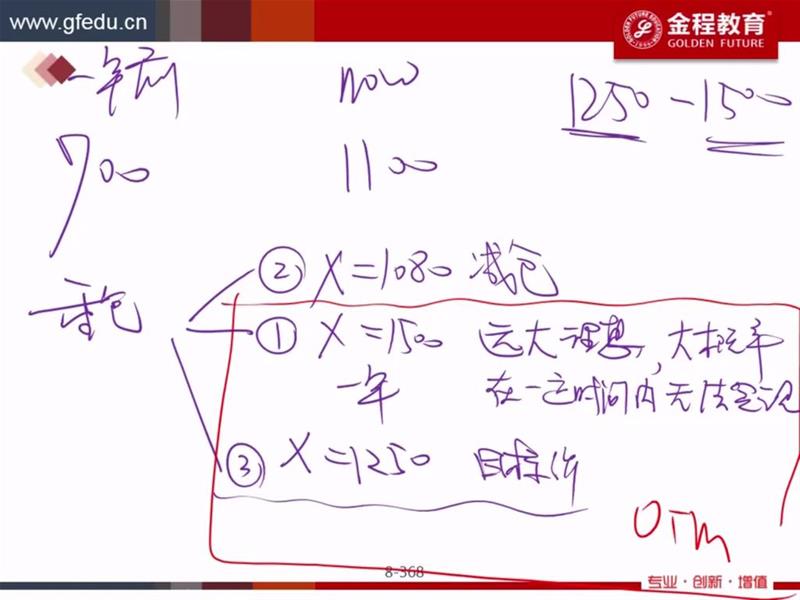 www.gfedu.cn
金程教育
GOLDEN FUTURE
一年前 now 1250-1500
700 1100
② X=1080 减仓
重仓
① X=1500 远大理想,大概率
一年 在一定时间内无法实现
③ X=1250 目标价
OTM
8-368
专业·创新·增值